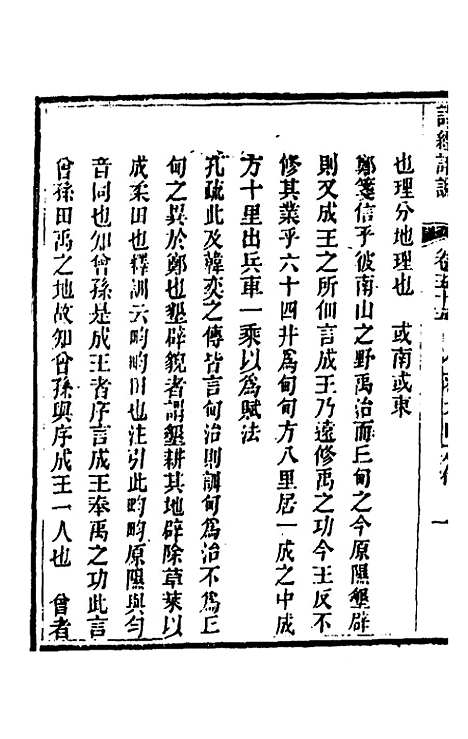 詩經詳說
也理分地理也　或南或東
鄭箋信乎彼南山之野禹治而丘甸之今原隰墾辟
則又成王之所佃言成王乃遠修禹之功今王反不
修其業乎六十四井為甸甸方八里居一成之中成
方十里出兵車一乘以為賦法
孔疏此及韓奕之傳皆言甸治則訓甸為治不為丘
甸之異於鄭也墾辟貌者謂墾耕其地辟除草萊以
成柔田也釋訓云畇畇田也注引此畇畇原隰與勻
音同也知曾孫是成王者序言成王奉禹之功此言
曾孫田禹之地故知曾孫與序成王一人也　曾者